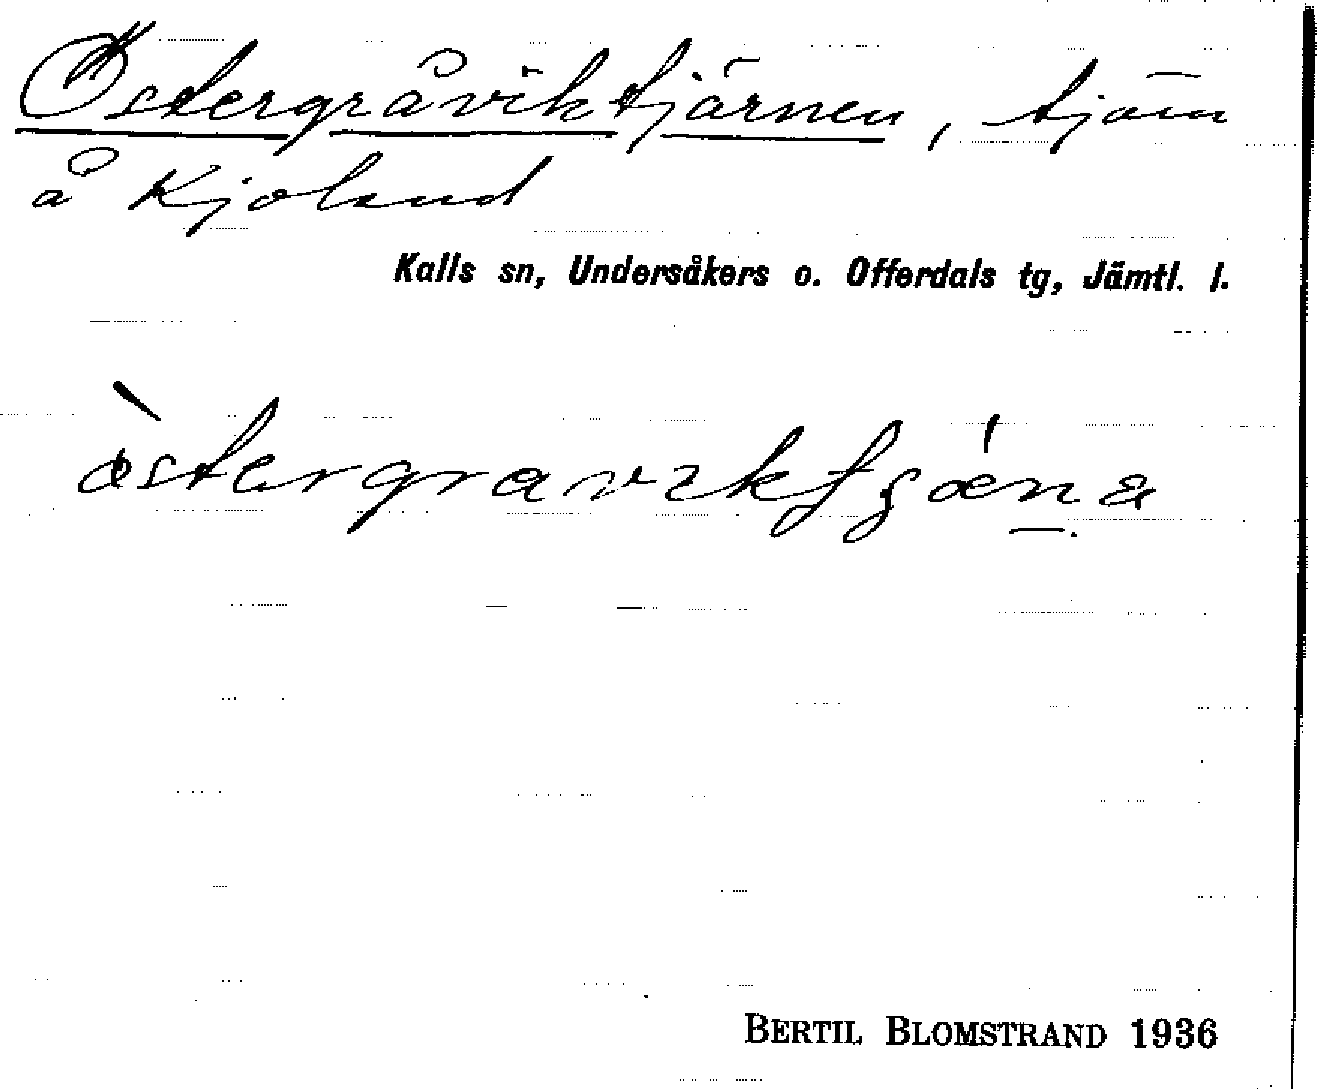 Östergråviktjärnen, tjärn
å Kjoland
Kalls sn, Undersåkers o. Offerdals tg, Jämtl. l.
BERTIL BLOMSTRAND 1936